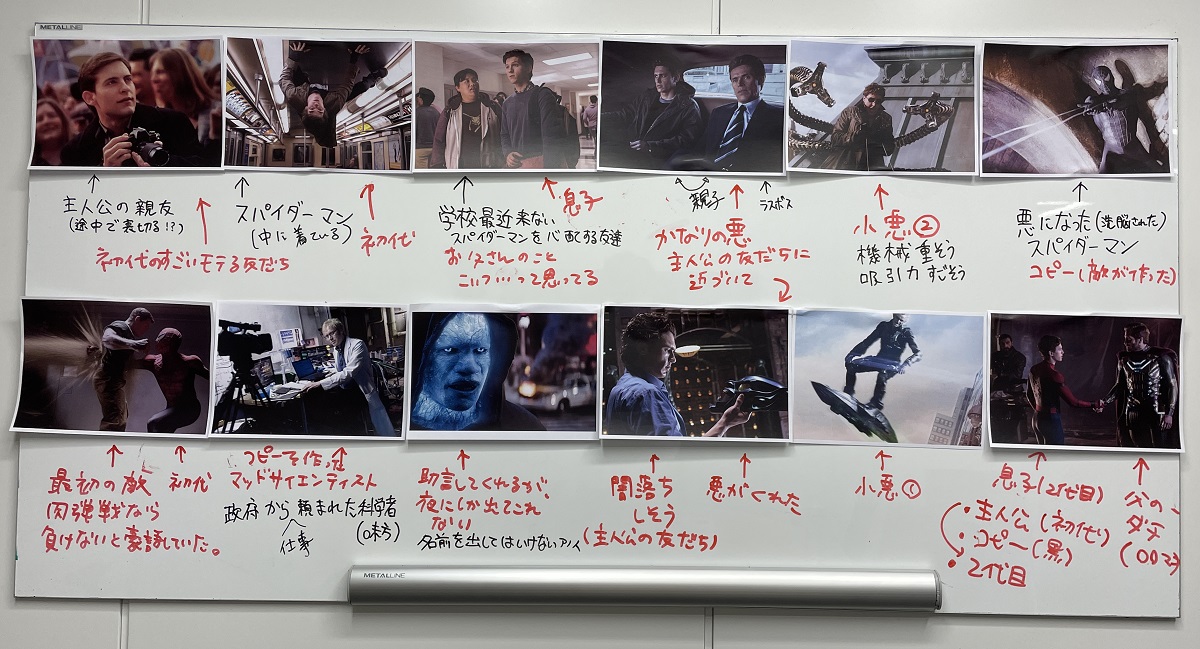 METALLINE
主人公の親友
(途中で裏切る!?)
初代のすごいモテる友だち
スパイダーマン
(中に着ている)
初代
学校最近来ない
スパイダーマンを心配する友達
息子
お父さんのこと
こいつ…って思ってる
親子
ラスボス
かなりの悪
主人公の友だちに
近づいて
小悪②
機械重そう
吸引力すごそう
悪になった(洗脳された)
スパイダーマン
コピー(敵が作った)
最初の敵
肉強戦なら
負けないと豪語していた。
初代
コピーを作った
マッドサイエンティスト
政府から頼まれた科学者
仕事
助言してくれるが、
夜にしか出てこれ
ない
名前を出してはいけないアノ人
闇落ち
しそう
(主人公の友だち)
悪がくれた
小悪①
息子(2代目)
・主人公(初代)
・コピー(黒)
・2代目
父の